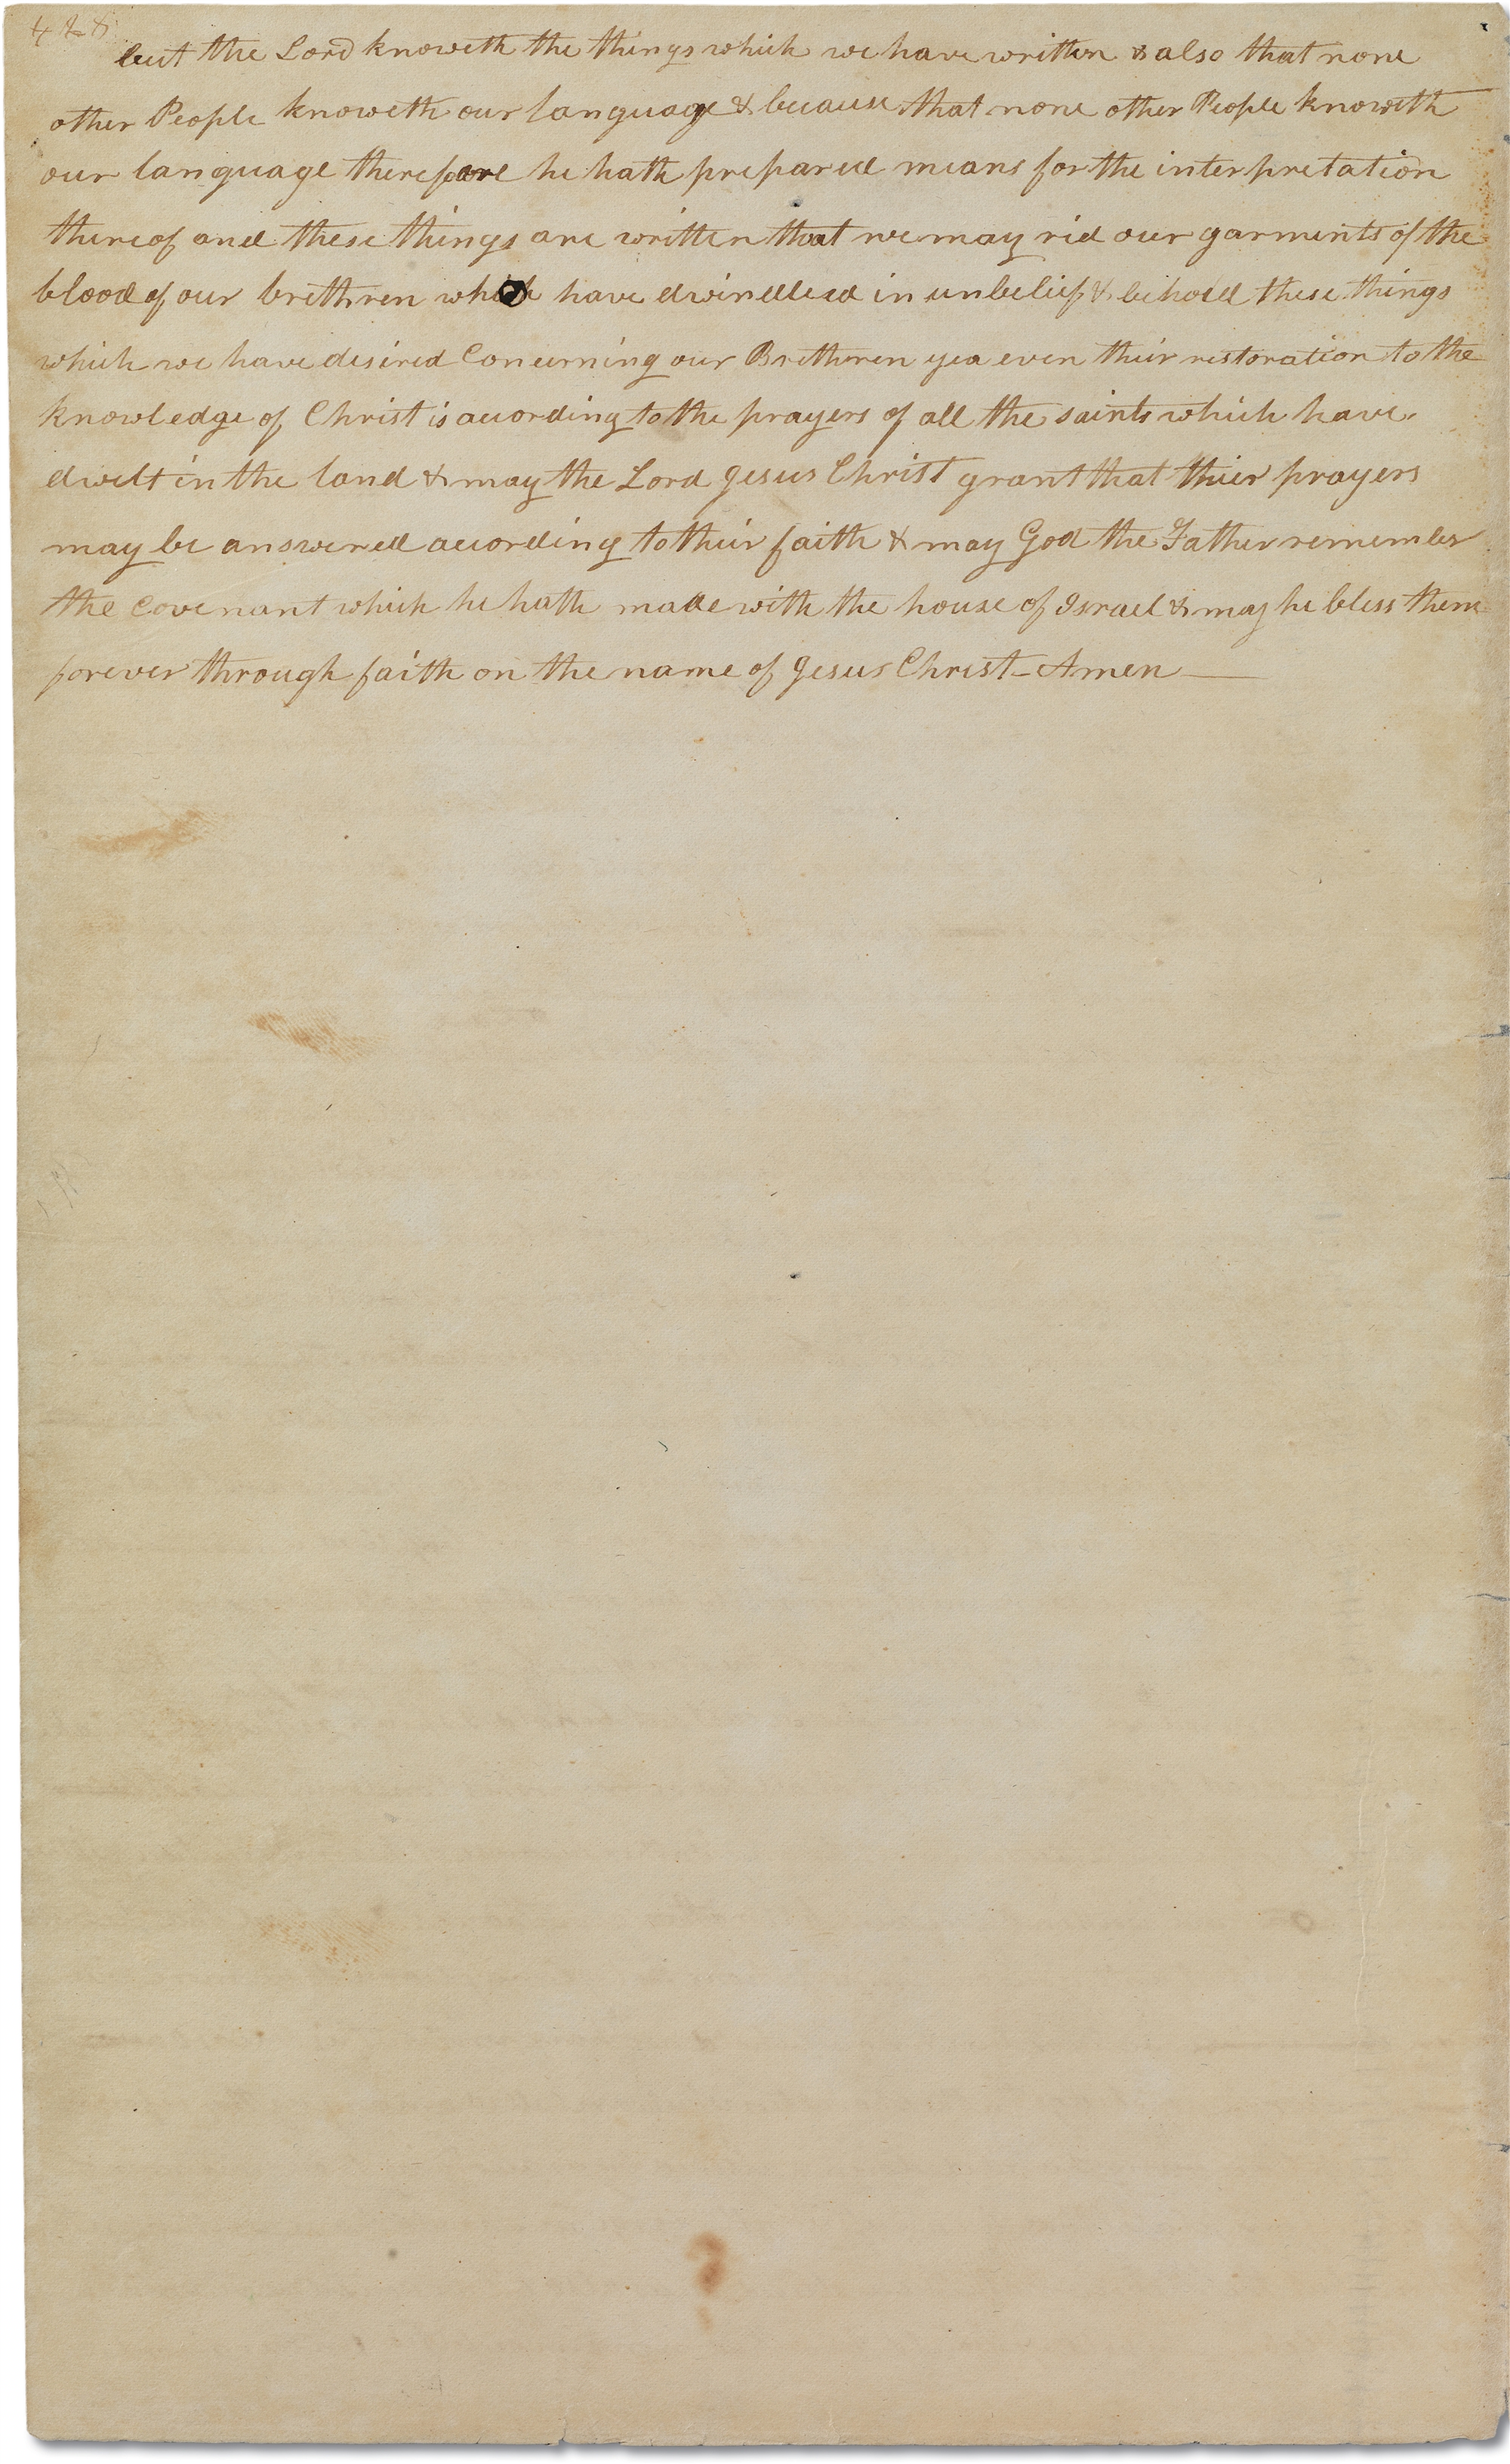 428
but the Lord knoweth the things which we have written & also that none
other People knoweth our language & because that none other People knoweth
our language therefore he hath prepared means for the interpretation
thereof and these things are written that we may rid our garments of the
blood of our brethren who have dwindled in unbelief & behold these things
which we have desired Concerning our Brethren yea even their restoration to the
knowledge of Christ is acording to the prayers of all the saints which have
dwelt in the land & may the Lord Jesus Christ grant that thier prayers
may be answered acording to their faith & may God the Father remember
the Covenant which he hath made with the house of Israel & may he bless them
forever through faith on the name of Jesus Christ–Amen—